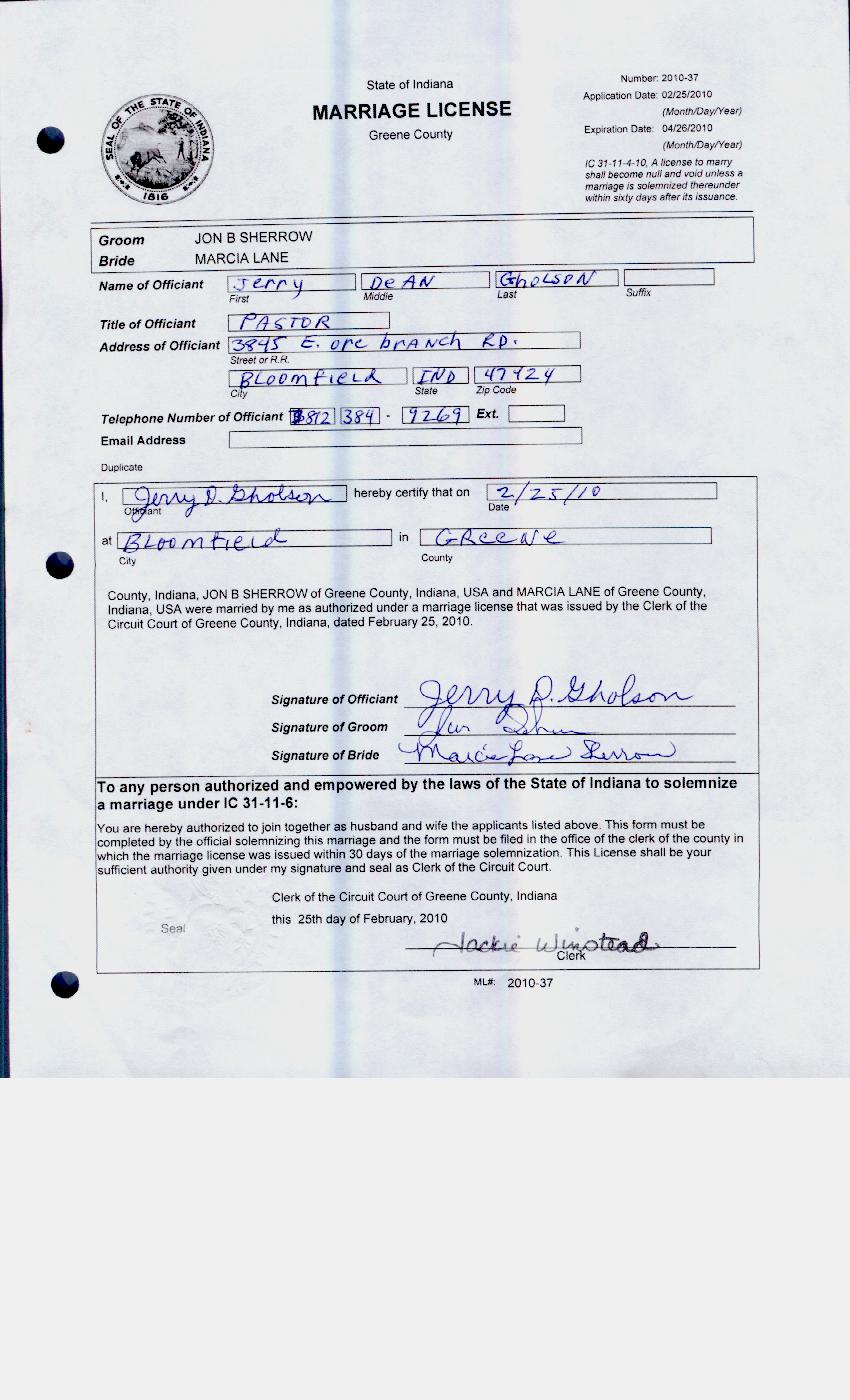 State of Indiana
MARRIAGE LICENSE
Greene County
Number: 2010-37
Application Date: 02/25/2010
(Month/Day/Year)
Expiration Date: 04/26/2010
(Month/Day/Year)
IC 31-11-4-10, A license to marry
shall become null and void unless a
marriage is solemnized thereunder
within sixty days after its issuance.
SEAL OF THE STATE OF INDIANA
1816
Groom JON B SHERROW
Bride MARCIA LANE
Name of Officiant Jerry DeAN GhOLSON
First Middle Last Suffix
Title of Officiant PASTOR
Address of Officiant 3845 E. ore brANch RD.
Street or R.R.
BLoomfieLD IND 47424
City State Zip Code
Telephone Number of Officiant 812 384 - 9269 Ext.
Email Address
Duplicate
I, Jerry D. Gholson hereby certify that on 2/25/10
Officiant Date
at BLoomfield in GReeNe
City County
County, Indiana, JON B SHERROW of Greene County, Indiana, USA and MARCIA LANE of Greene County,
Indiana, USA were married by me as authorized under a marriage license that was issued by the Clerk of the
Circuit Court of Greene County, Indiana, dated February 25, 2010.
Signature of Officiant Jerry D. Gholson
Signature of Groom
Signature of Bride Marcia Lane Sherrow
To any person authorized and empowered by the laws of the State of Indiana to solemnize
a marriage under IC 31-11-6:
You are hereby authorized to join together as husband and wife the applicants listed above. This form must be
completed by the official solemnizing this marriage and the form must be filed in the office of the clerk of the county in
which the marriage license was issued within 30 days of the marriage solemnization. This License shall be your
sufficient authority given under my signature and seal as Clerk of the Circuit Court.
Clerk of the Circuit Court of Greene County, Indiana
Seal this 25th day of February, 2010
Jackie Winstead
Clerk
ML#: 2010-37